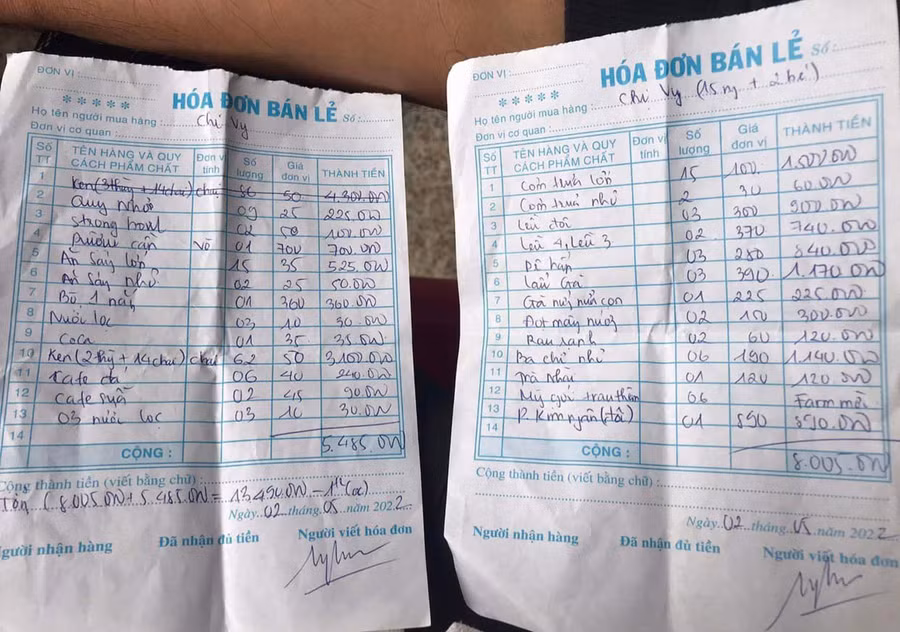 ĐƠN VỊ :
*****
HÓA ĐƠN BÁN LẺ Số :
Họ tên người mua hàng : Chị Vy
Đơn vị cơ quan :
Số TT TÊN HÀNG VÀ QUY CÁCH PHẨM CHẤT Đơn vị tính Số lượng Giá đơn vị THÀNH TIỀN
1 Ken (3 thg + 14 chai) chai 86 50 4.300.00
2 Quy nhỏ 09 25 225.00
3 Strong bowl 02 50 100.00
4 Rượu cần Vò 01 700 700.00
5 Ăn sáng lớn 15 35 525.00
6 Ăn sáng nhỏ 02 25 50.00
7 Bò 1 nắng 01 360 360.00
8 Nước lọc 03 10 30.00
9 Coca 01 35 35.00
10 Ken (2 thg + 14 chai) chai 62 50 3.100.00
11 Cafe đá 06 40 240.00
12 Cafe sữa 02 45 90.00
13 03 nước lọc 03 10 30.00
14
CỘNG : 5.485.00
Cộng thành tiền (viết bằng chữ) :
(8.005.00 + 5.485.00 = 13.490.00 –
Ngày 02 tháng 05 năm 2022
Người nhận hàng Đã nhận đủ tiền Người viết hóa đơn
ĐƠN VỊ :
*****
HÓA ĐƠN BÁN LẺ Số :
Họ tên người mua hàng : Chị Vy (15 ng + 2 bé)
Đơn vị cơ quan :
Số TT TÊN HÀNG VÀ QUY CÁCH PHẨM CHẤT Đơn vị tính Số lượng Giá đơn vị THÀNH TIỀN
1 Cơm trưa lớn 15 100 1.500.00
2 Cơm trưa nhỏ 2 30 60.00
3 Lều đôi 03 300 900.00
4 Lều 4, Lều 3 02 370 740.00
5 Dê hấp 03 280 840.00
6 Lẩu Gà 03 390 1.170.00
7 Gà nướng nửa con 01 225 225.00
8 Đọt mây nướng 02 150 300.00
9 Rau xanh 02 60 120.00
10 Ba chỉ nhỏ 06 190 1.140.00
11 Trà Nhài 01 120 120.00
12 Mỳ gói 06 Farm mời
13 P. Kim ngân 01 890 890.00
14
CỘNG : 8.005.00
Cộng thành tiền (viết bằng chữ) :
Ngày 02 tháng 05 năm 2022
Người nhận hàng Đã nhận đủ tiền Người viết hóa đơn